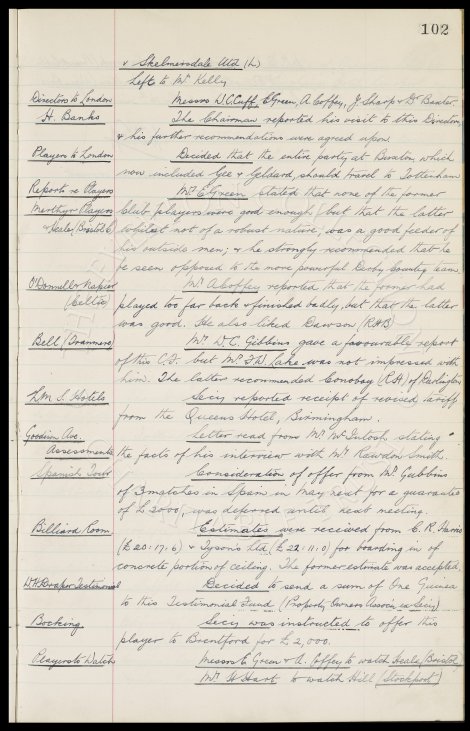 102
& Skelmersdale Utd (h)
Left to Mr Kelly
Directors to London Messrs W.C. Cuff, E Green, A. Coffey, J. Sharp & Dr Baxter.
H. Banks The Chairman reported his visit to this Director
& his further recommendations were agreed upon.
Players to London Decided that the entire party at Buxton, which
now included Gee & Geldard, should travel to Tottenham
Reports re Players Mr E. Green stated that none of the former
Merthyr Players club players were good enough, but that the latter
& Heale, Bristol C whilst not of a robust nature, was a good feeder of
his outside men; & he strongly recommended that he
be seen opposed to the more powerful Derby County team.
O'Donnell & Napier Mr A Coffey reported that the former had
(Celtic) played too far back & finished badly, but that the latter
was good. He also liked Dawson (RHB)
Bell (Tranmere) Mr W.C. Gibbins gave a favourable report
of this C.F. but Mr F.W. Lake was not impressed with
him. The latter recommended Conoboy (R.H) of Darlington
L.M.S. Hotels Secy reported receipt of revised tariff
from the Queens Hotel, Birmingham.
Goodison Ave. Letter read from Mr McIntosh, stating
Assessments the facts of his interview with Mr Rawdon Smith.
Spanish Tour Consideration of offer from Mr Gubbins
of 3 matches in Spain in May next for a guarantee
of £2000, was deferred until next meeting.
Billiard Room Estimates were received from C. R. Harris
(£20:17:6) & Tysons Ltd (£22:11:0) for boarding in of
concrete portion of ceiling. The former estimate was accepted.
W.H. Draper Testimonial Decided to send a sum of One Guinea
to this Testimonial Fund (Property Owners Assocn ex Secy)
Bocking. Secy was instructed to offer this
player to Brentford for £2,000.
Players to Watch Messrs E Green & A. Coffey to watch Heale, (Bristol)
Mr H Hart to watch Hill (Stockport)